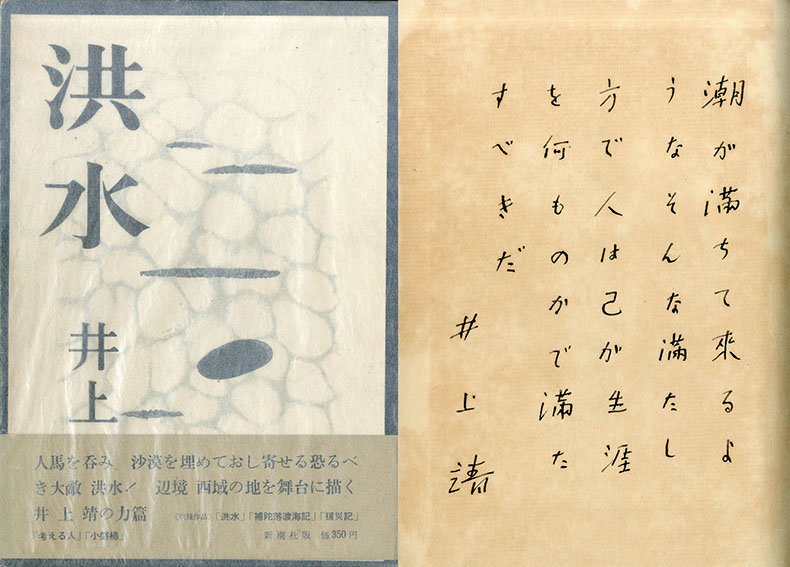 洪水
井上
人馬を呑み 沙漠を埋めておし寄せる恐るべ
き大敵 洪水! 辺境 西域の地を舞台に描く
井上 靖の力篇 〔収録作品〕「洪水」「補陀落渡海記」「狼災記」
「考える人」「小磐梯」 新潮社版 価350円
潮が満ちて來るよ
うなそんな満たし
方で人は己が生涯
を何ものかで満た
すべきだ
井上靖